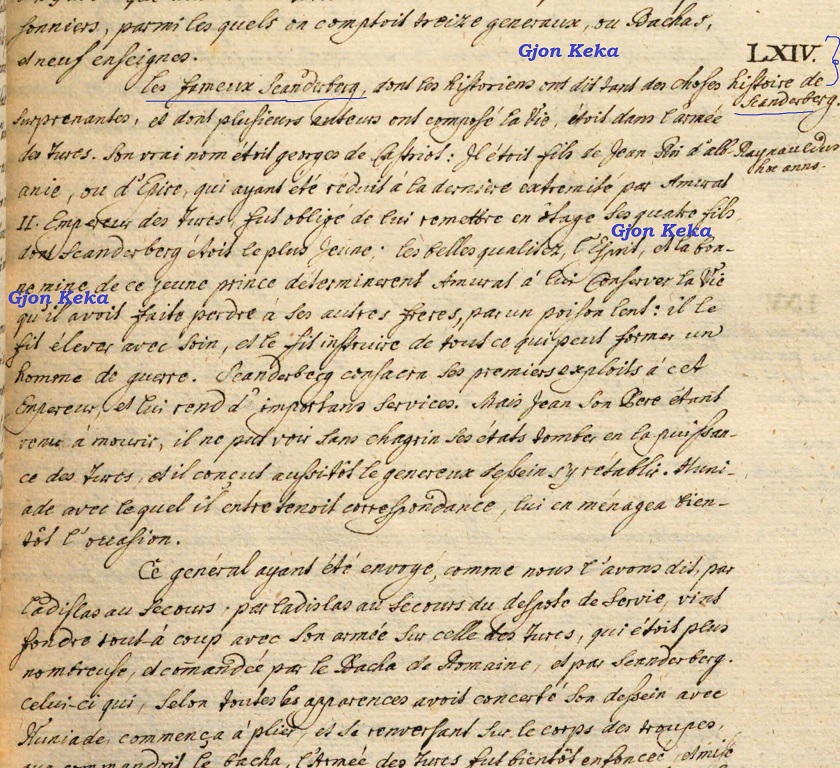 sonniers, parmi les quels on comptoit treize generaux, ou Bachas,
et neuf enseignes.
Gjon Keka
LXIV.
les fameux Scanderberg, dont les historiens ont dit tant des choses
histoire de
Scanderberg
surprenantes, et dont plusieurs auteurs ont composé la Vie, étoit dans l'armée
des Turcs. Son vrai nom étoit georges de Castriot: Il étoit fils de Jean d'alb-
Raynaudus
hoc anno.
anie, ou d'Epire, qui ayant été réduit à la derniere extremité par Amurat
II. Empereur des Turcs, fut obligé de lui remettre en ôtage ses quatre fils
Gjon Keka
dont Scanderberg étoit le plus Jeune; les belles qualitez, l'Esprit, et la bon-
ne mine de ce jeune prince déterminerent Amurat à lui Conserver la Vie
Gjon Keka
qu'il avoit faite perdre à ses autres freres, par un poison lent: il le
fit élever avec soin, et le fit instruire de tout ce qui peut former un
homme de guerre. Scanderberg consacra ses premiers exploits à cet
Empereur, et lui rend d'importans services. Mais Jean Son Pere étant
venu à mourir, il ne put voir sans chagrin ses états tomber en la puissan-
ce des Turcs, et il conçut aussitôt le genereux dessein s'y rétablir. Huni-
ade avec lequel il entretenoit correspondance, lui en ménagea bien-
tôt l'occasion.
Ce general ayant été envoyé, comme nous l'avons dit, par
Ladislas au secours, par ladislas au secours du despote de Servie, vint
fondre tout-à coup avec son armée sur celle des Turcs, qui étoit plus
nombreuse, et comandée par le Bacha de Romaine, et par Scanderberg.
celui-ci qui, selon toutes les apparences avoit concerté son dessein avec
Huniade, commença à plier, et se renversant sur le corps des troupes,
que commandoit le bacha, l'Armée des Turcs fut bientôt enfoncée, et mise